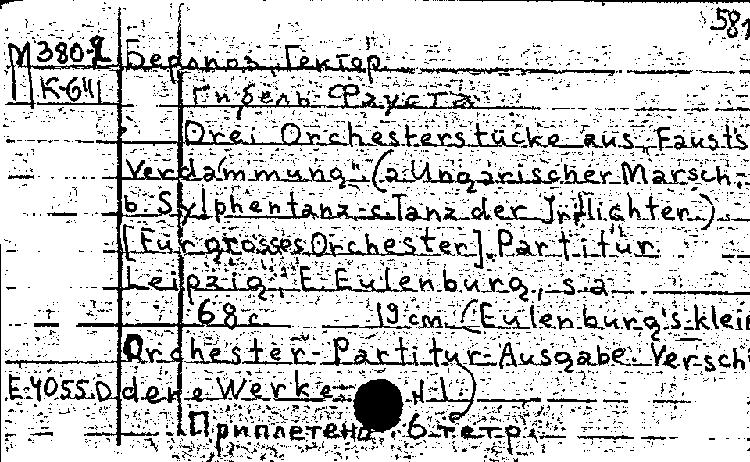 581
М 380-2 Берлиоз, Гектор.
К-641 Гибель Фауста
Drei Orchesterstücke aus „Faust's
Verdammung". (a. Ungarischer Marsch.-
b. Sylphentanz-c. Tanz der Irrlichter.)
[Für grosses Orchester]. Partitur.
Leipzig, E. Eulenburg, s.a.
68 с. 19 cm. (Eulenburg's klein
Orchester-Partitur-Ausgabe. Versch
E-4055.D dene Werke. N 1.)
Приплетено 6 тетр.